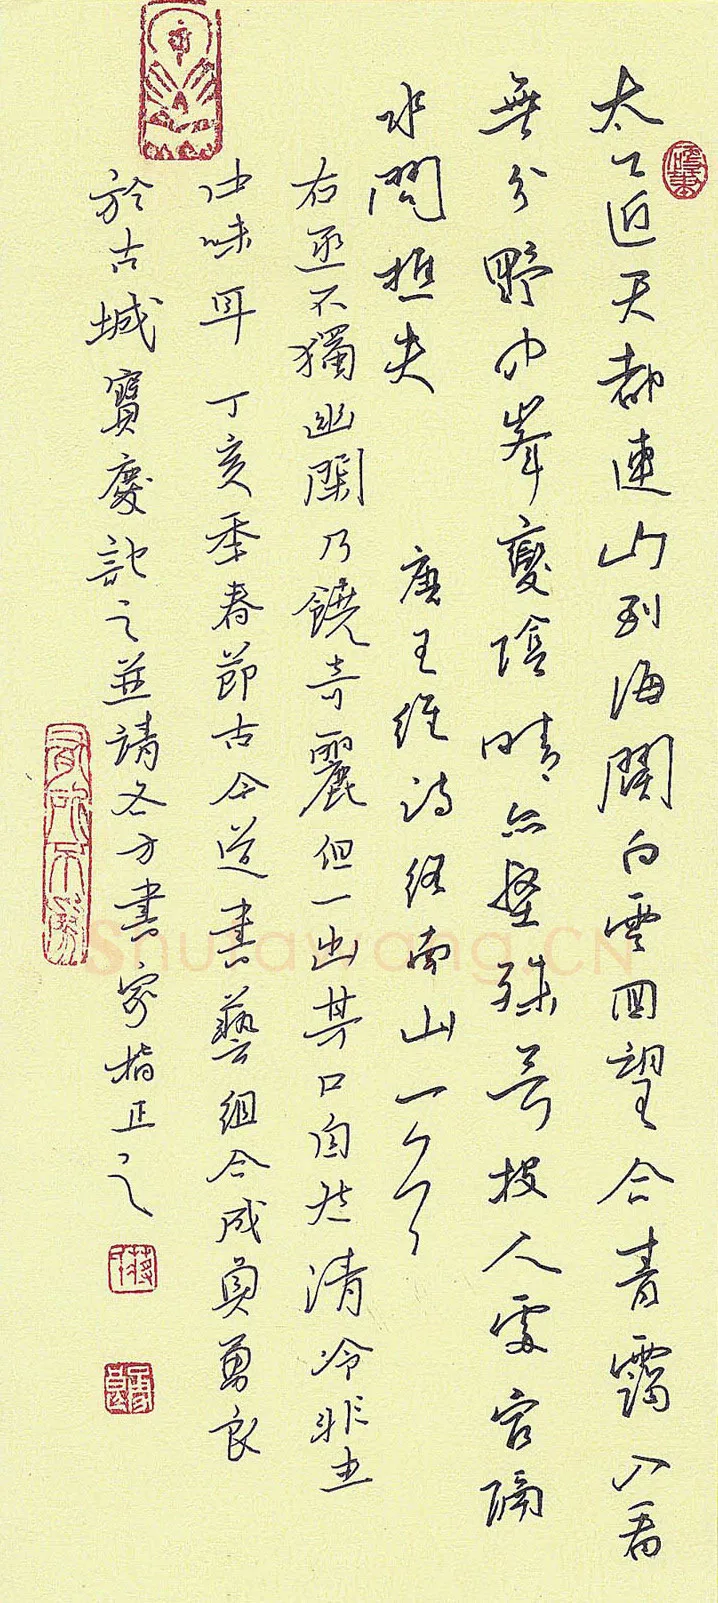 太乙近天都連山到海隅白雲回望合青靄入看
無分野中峯變陰晴衆壑殊投人處宿隔
水問樵夫 唐王維詩終南山一
右丞不獨幽閑乃饒奇麗但一出其口自然清冷非世
中味耳 丁亥季春節古今道書藝組合成員勇良
於古城寶慶記之並請各方書家指正之
Shufawang.CN